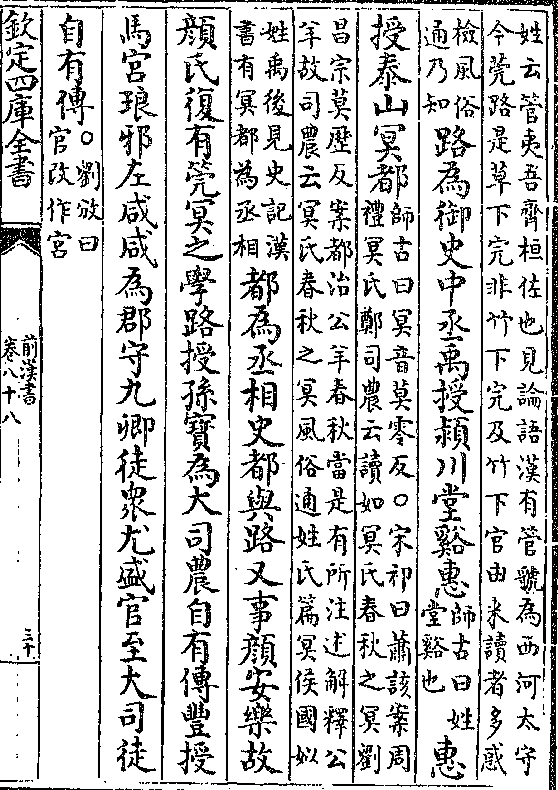 姓云管夷吾齊桓佐也見論語漢有管號為西河太守
今筦路是草下完非竹下完及竹下官由来讀者多惑
檢風俗
通乃知
路為御史中丞禹授潁川堂谿惠
師古曰姓
堂谿也
惠
授泰山冥都
師古曰冥音莫零反○宋祁曰蕭該案周
禮冥氏鄭司農云讀如冥氏春秋之冥劉
昌宗莫歴反案都治公羊春秋當是有所注述解釋公
羊故司農云冥氏春秋之冥風俗通姓氏篇冥侯國姒
姓禹後見史記漢
書有冥都為丞相
都為丞相史都與路又事顏安樂故
顏氏復有筦冥之學路授孫寶為大司農自有傳豐授
馬宮琅邪左咸咸為郡守九卿徒衆尤盛官至大司徒
自有傳
○劉攽曰
官改作宮
欽定四庫全書
前漢書
卷八十八
三十